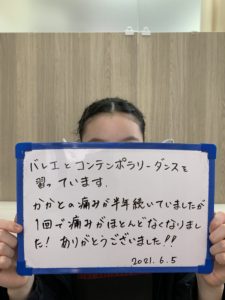 バレエとコンテンポラリーダンスを
習っています.
かかとの痛みが半年続いていましたが
1回で痛みがほとんどなくなりまし
た! ありがとうございました!!
2021.6.5